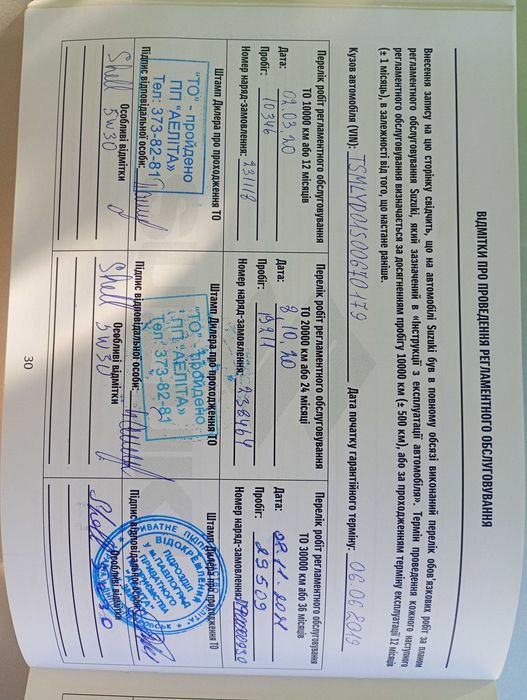 ВІДМІТКИ ПРО ПРОВЕДЕННЯ РЕГЛАМЕНТНОГО ОБСЛУГОВУВАННЯ
Внесення запису на цю сторінку свідчить, що на автомобілі Suzuki був в повному обсязі виконаний перелік обов'язкових робіт за планим
регламентного обслуговування Suzuki, який зазначений в «Інструкції з експлуатації автомобіля». Термін проведення кожного наступного
регламентного обслуговування визначається за досягненням пробігу 10000 км (± 500 км), або за проходженням терміну експлуатації 12 місяців
(± 1 місяць), в залежності від того, що настане раніше.
Кузов автомобіля (VIN): TSMLYD01S00670179 Дата початку гарантійного терміну: 06.06.2019
Перелік робіт регламентного обслуговування
ТО 10000 км або 12 місяців
Дата: 02.03.20
Пробіг: 10346
Номер наряд-замовлення:
Штамп Дилера про проходження ТО
"ТО" - пройдено
ПП "АЕЛІТА"
Тел: 373-82-81
Підпис відповідальної особи:
Особливі відмітки
Shell
5W30
Перелік робіт регламентного обслуговування
ТО 20000 км або 24 місяці
Дата: 8.10.20
Пробіг: 19211
Номер наряд-замовлення: 238464
Штамп Дилера про проходження ТО
"ТО" - пройдено
ПП "АЕЛІТА"
Тел: 373-82-81
Підпис відповідальної особи:
Особливі відмітки
Shell
5W30
Перелік робіт регламентного обслуговування
ТО 30000 км або 36 місяців
Дата: 02.11.2021
Пробіг: 29509
Номер наряд-замовлення:
Штамп Дилера про проходження ТО
Підпис відповідальної особи:
Особливі відмітки
Shell
30